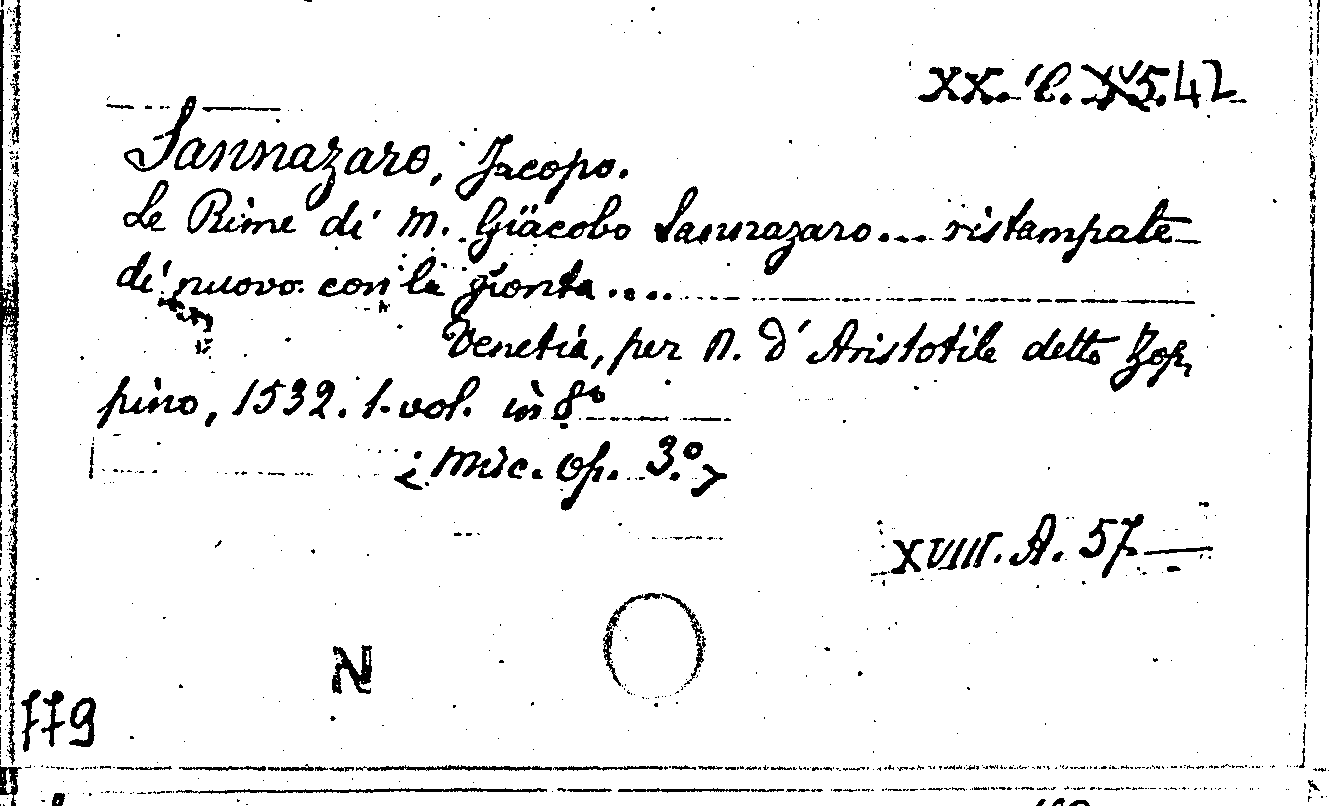 XX. C. 42
Sannazaro, Jacopo.
Le Rime di M. Giacobo Sannazaro... ristampate
di nuovo con la gionta....
Venetia, per N. d'Aristotile detto Zop,
pino, 1532. 1. vol. in 8º
<Misc. op. 3.º>
XVIII. A. 57
N
779